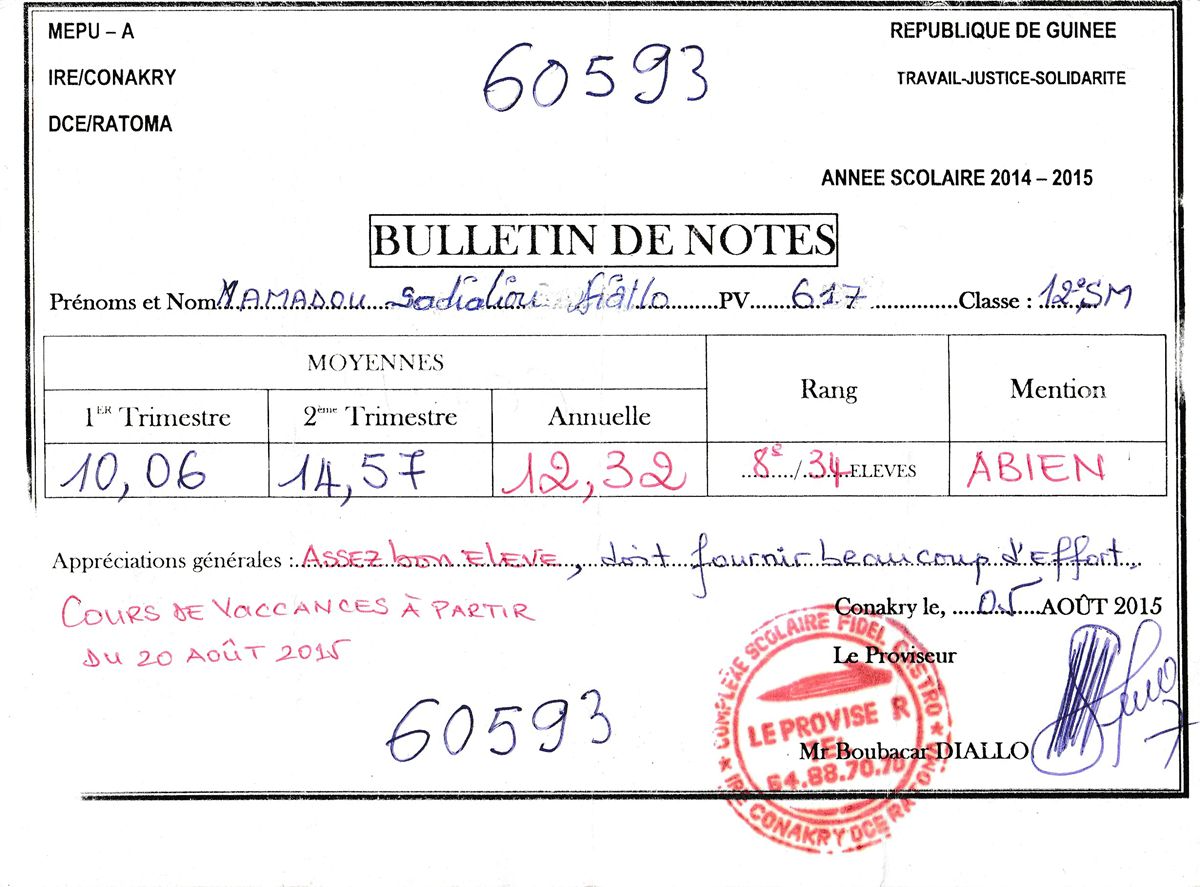 MEPU – A
REPUBLIQUE DE GUINEE
60593
IRE/CONAKRY
TRAVAIL-JUSTICE-SOLIDARITE
DCE/RATOMA
ANNEE SCOLAIRE 2014 – 2015
BULLETIN DE NOTES
Prénoms et Nom MAMADOU Sadialiou Diallo PV 617 Classe : 12e SM
MOYENNES
Rang
Mention
1ER Trimestre
2ème Trimestre
Annuelle
10,06
14,57
12,32
8e/34 ELEVES
ABIEN
Appréciations générales : ASSEZ bon ELEVE, doit fournir beaucoup d'Effort.
COURS DE VACCANCES À PARTIR
DU 20 AOÛT 2015
Conakry le, 05 AOÛT 2015
Le Proviseur
60593
Mr Boubacar DIALLO
COMPLEXE SCOLAIRE FIDEL CASTRO
LE PROVISE R
TEL
64.88.70.70
IRE CONAKRY DCE RATOMA